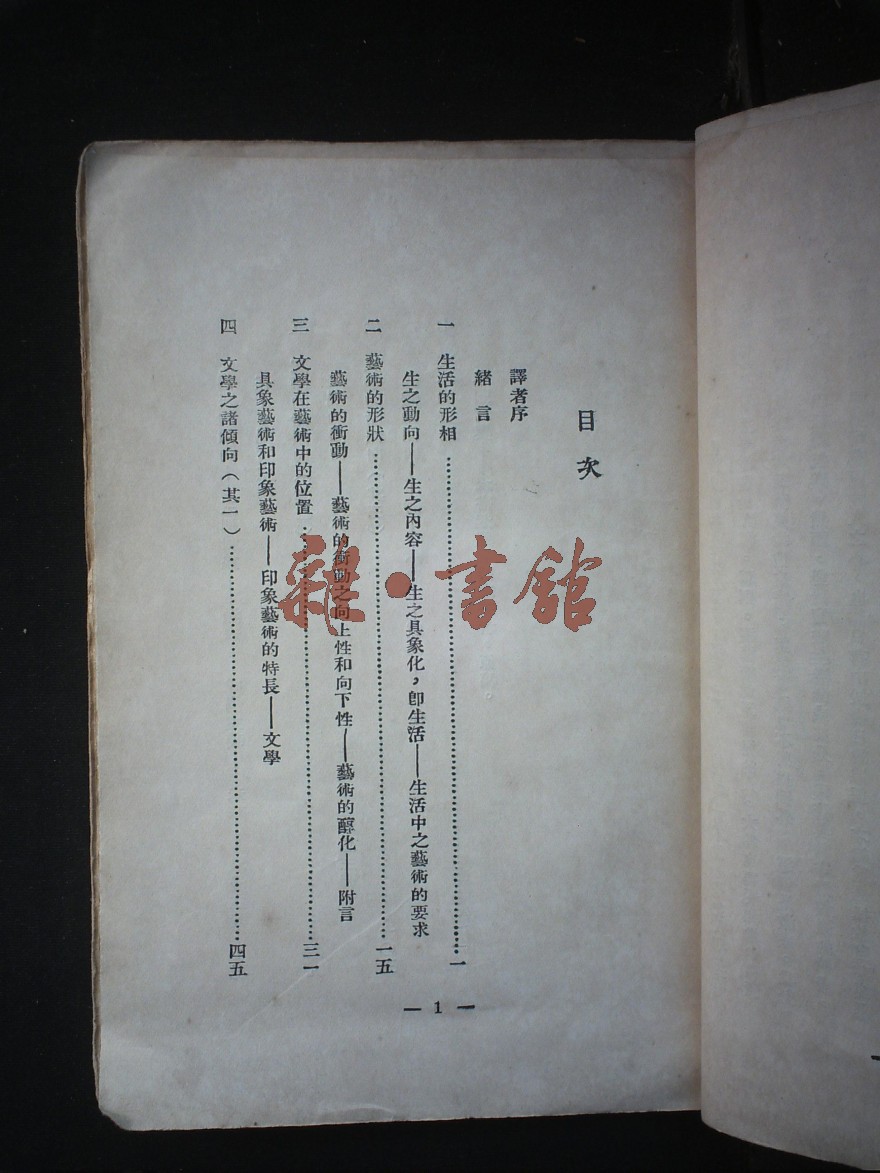 目次
譯者序
緒言
一 生活的形相…………一
生之動向——生之內容——生之具象化，卽生活——生活中之藝術的要求
二 藝術的形狀…………一五
藝術的衝動——藝術的衝動之向上性和向下性——藝術的醇化——附言
三 文學在藝術中的位置…………三一
具象藝術和印象藝術——印象藝術的特長——文學
四 文學之諸傾向（其一）…………四五
— 1 —
雜·書館